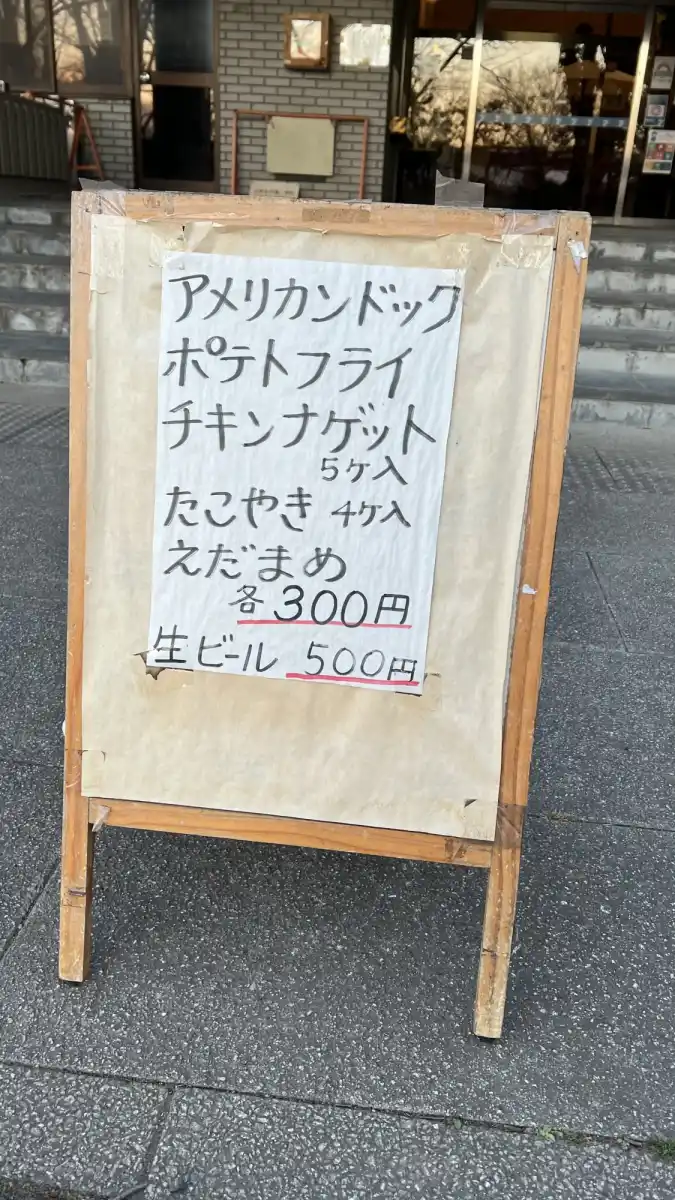 アメリカンドック
ポテトフライ
チキンナゲット
5ケ入
たこやき 4ケ入
えだまめ
各300円
生ビール 500円